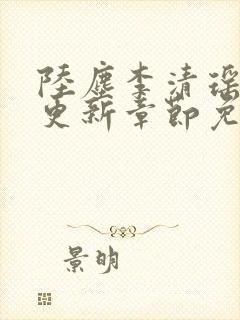 陸塵李清瑶
更新章節免
景明